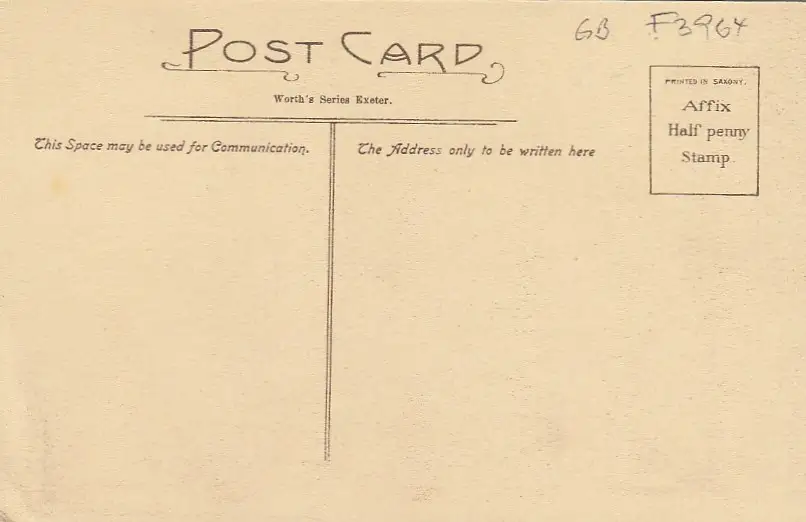 GB F3964
POST CARD
Worth's Series Exeter.
This Space may be used for Communication.
The Address only to be written here
PRINTED IN SAXONY.
Affix
Half penny
Stamp.